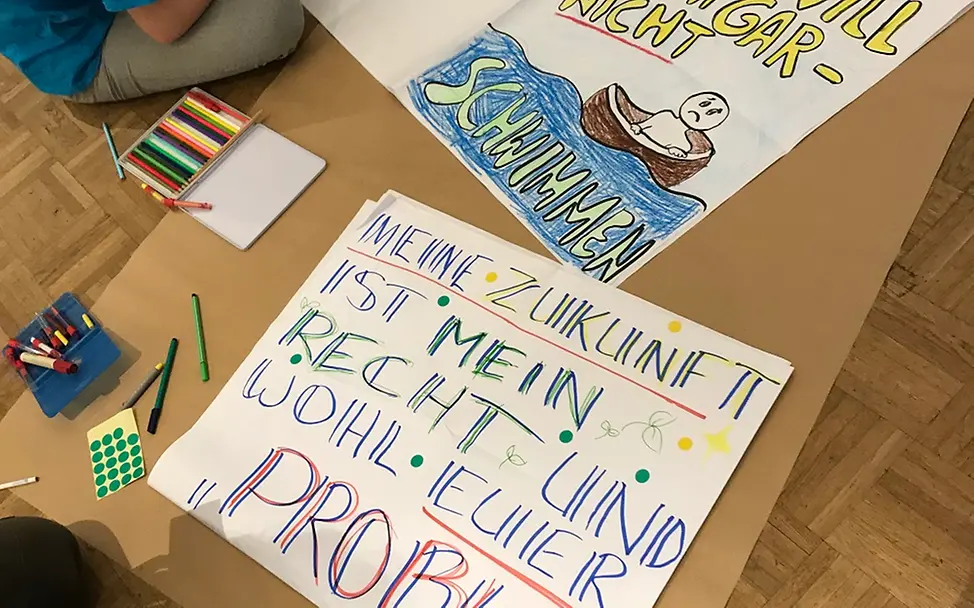 WILL
GAR-
NICHT
SCHWIMMEN
MEINE ZUKUNFT
IST MEIN
RECHT UND
WOHL EUER
"PROBL